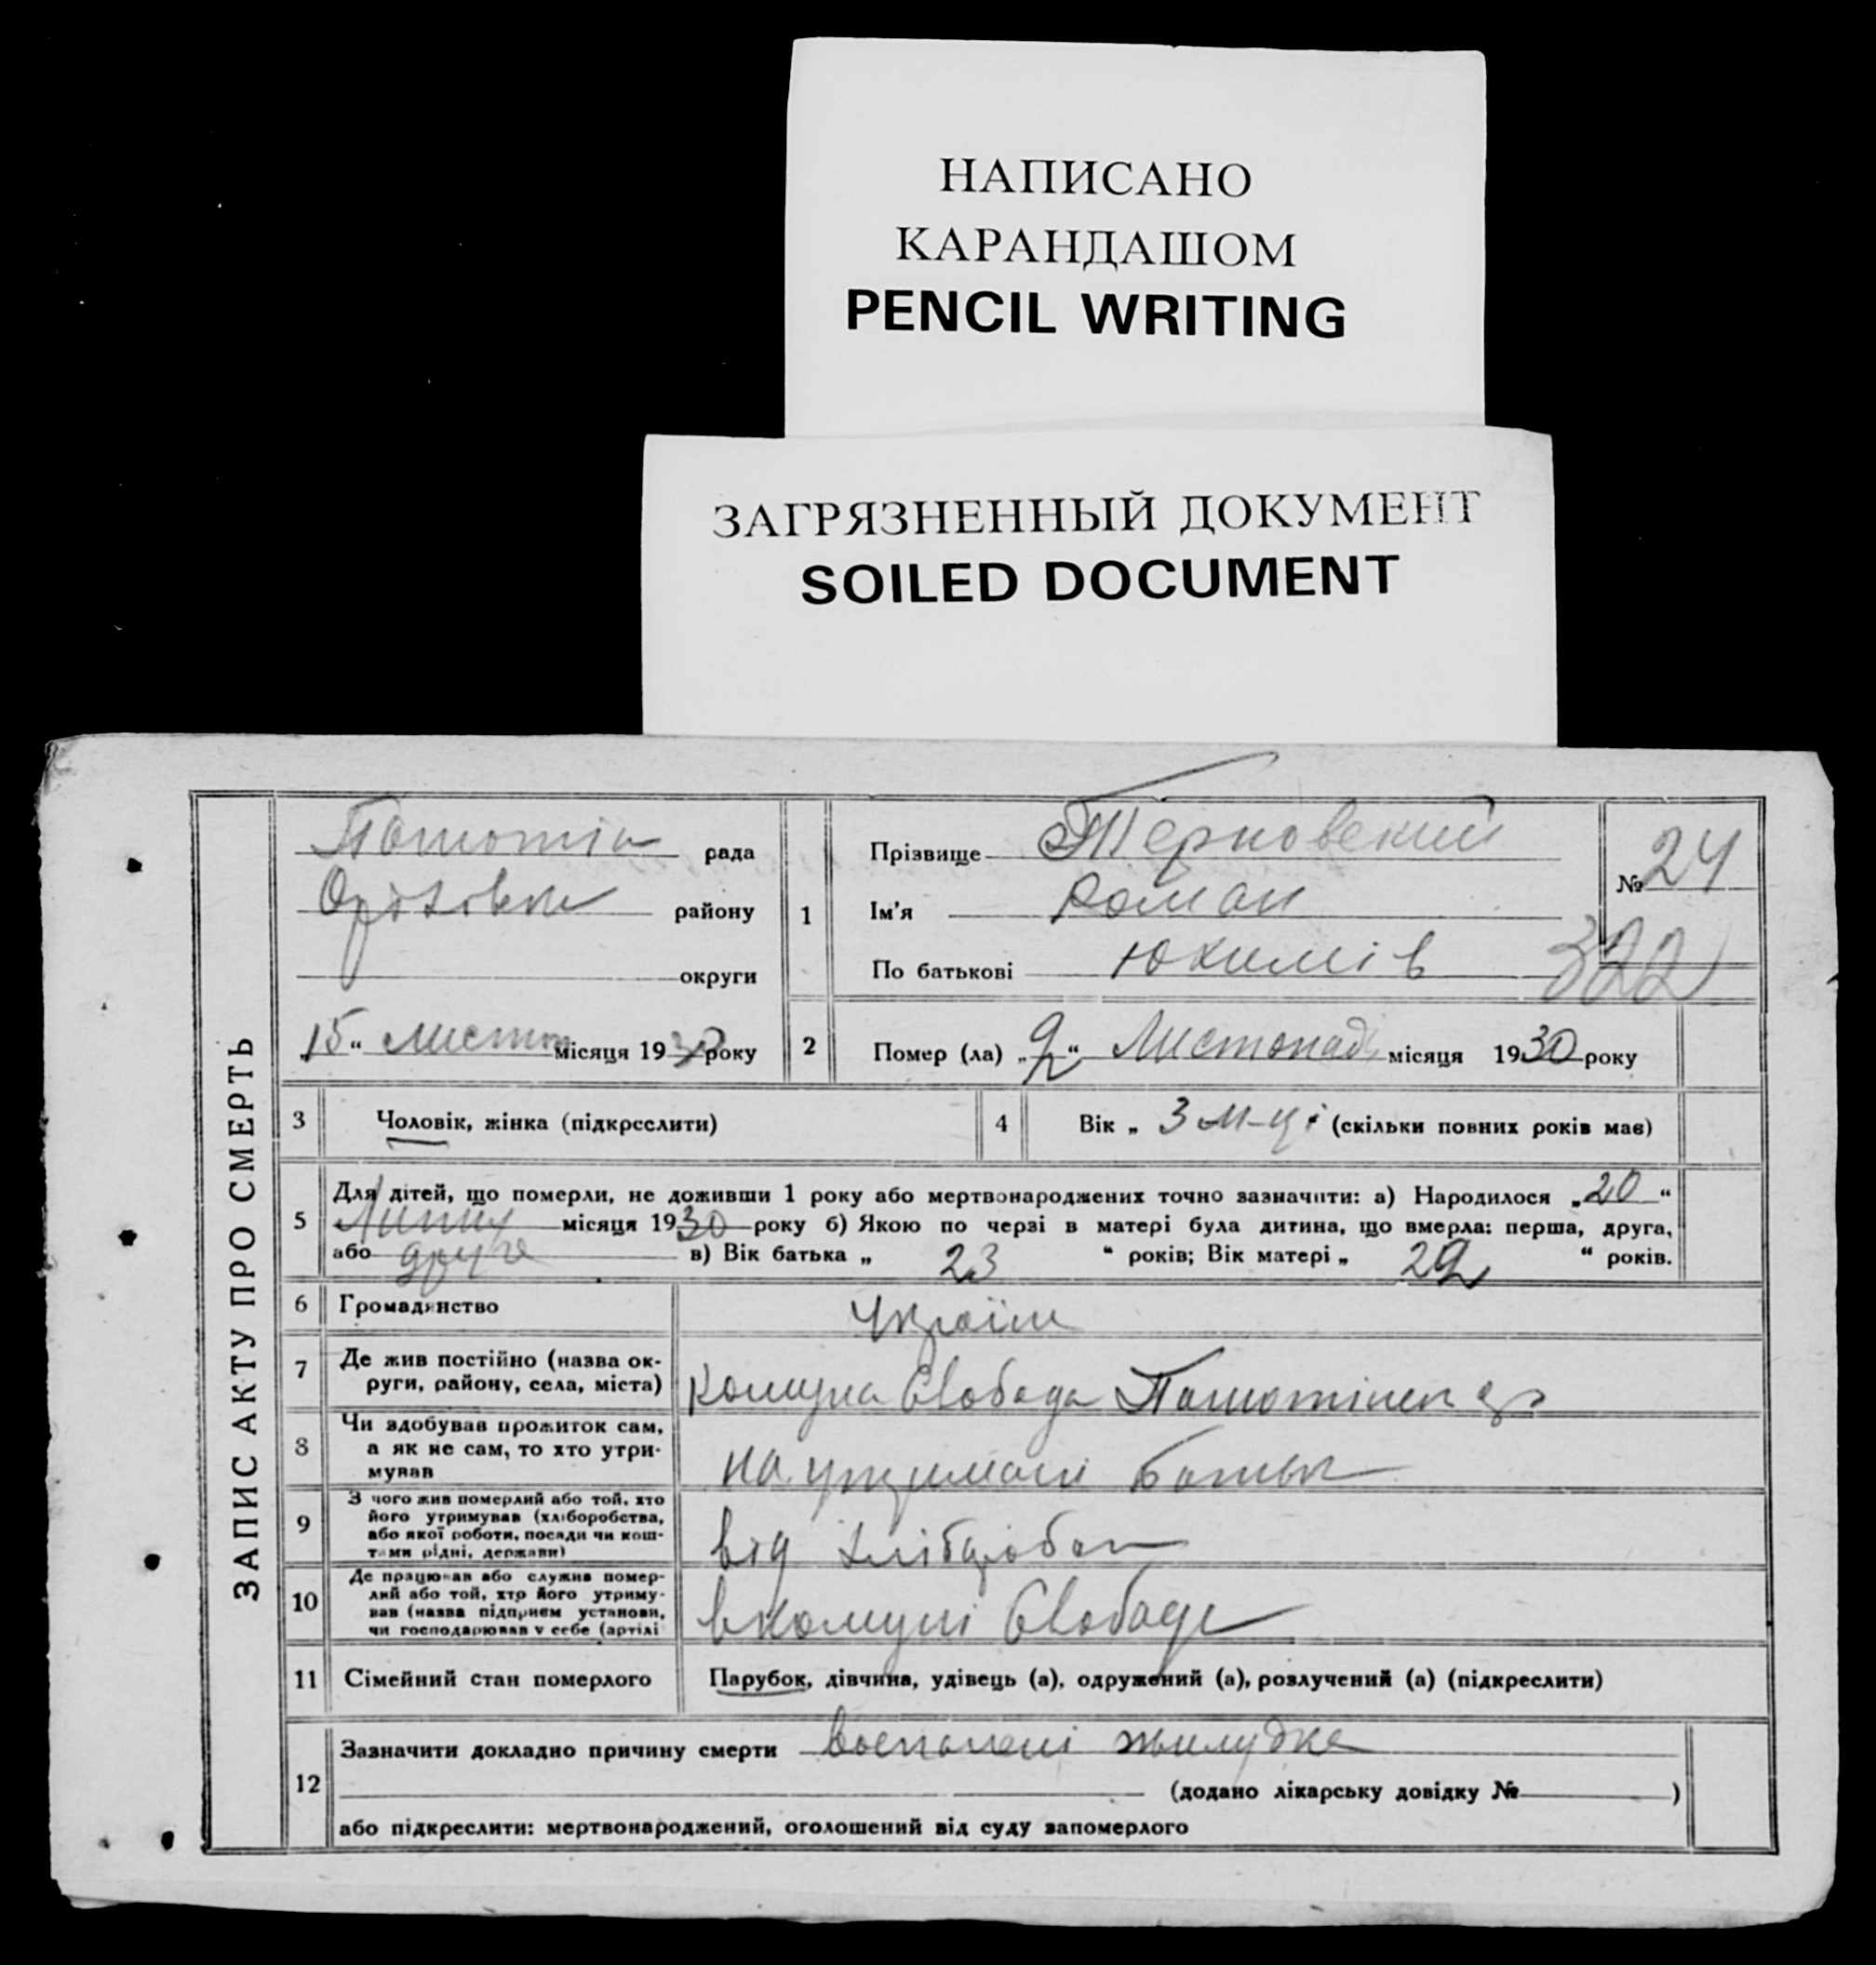 НАПИСАНО
КАРАНДАШОМ
PENCIL WRITING
ЗАГРЯЗНЕННЫЙ ДОКУМЕНТ
SOILED DOCUMENT
ЗАПИС АКТУ ПРО СМЕРТЬ
рада
району
округи
„15“ Листоп місяця 1930 року
1
Прізвище Терновский
Ім'я Роман
По батькові Юхимів
№ 24
322
2
Помер (ла) „9“ Листопад місяця 1930 року
3
Чоловік, жінка (підкреслити)
4
Вік „ 3 м-ці (скільки повних років має)
5
Для дітей, що померли, не доживши 1 року або мертвонароджених точно зазначити: а) Народилося „20“
Липня місяця 1930 року б) Якою по черзі в матері була дитина, що вмерла: перша, друга,
або друге в) Вік батька „ 23 “ років; Вік матері „ 22 “ років.
6
Громадянство
Україн
7
Де жив постійно (назва ок-
руги, району, села, міста)
Комуна Свобода
8
Чи здобував прожиток сам,
а як не сам, то хто утри-
мував
на утримані батьк
9
З чого жив померлий або той, хто
його утримував (хліборобства,
або якої роботи, посади чи кош-
тами рідні, держави)
від хлібороб
10
Де працював або служив помер-
лий або той, хто його утриму-
вав (назва підприєм установи,
чи господарював у себе (артілі
в комуні Свобода
11
Сімейний стан померлого
Парубок, дівчина, удівець (а), одружений (а), розлучений (а) (підкреслити)
12
Зазначити докладно причину смерти воспалені жилудка
(додано лікарську довідку № )
або підкреслити: мертвонароджений, оголошений від суду запомерлого